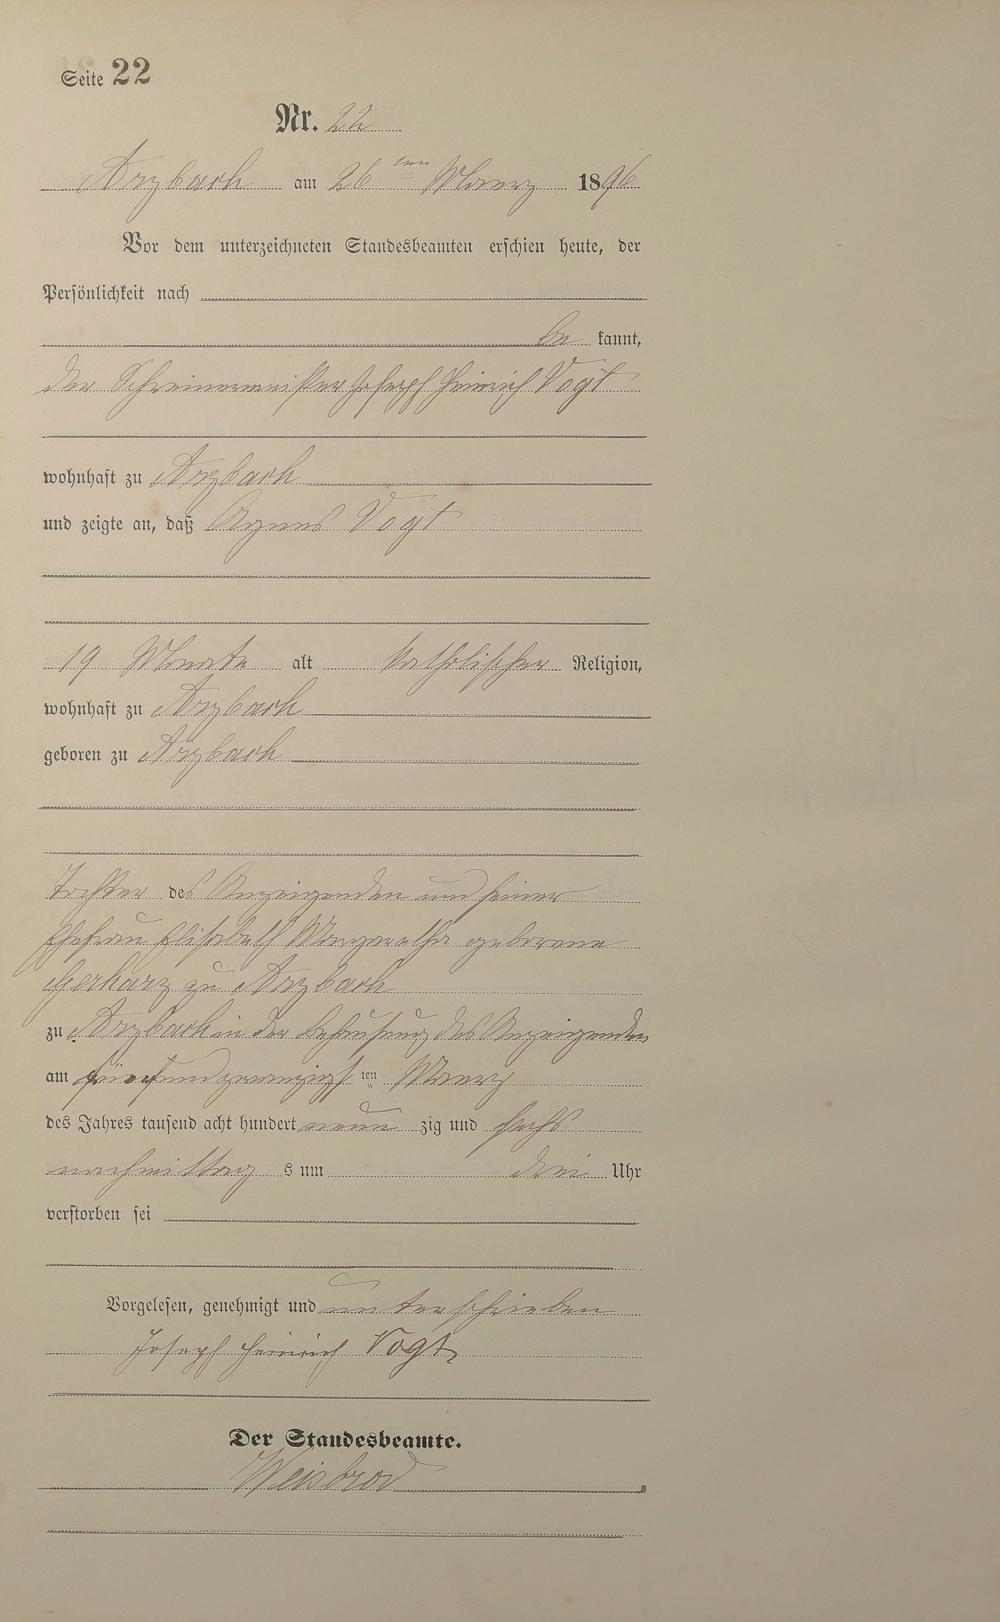 Seite 22
Nr. 22
Arzbach am 26ten Maerz 1896
Vor dem unterzeichneten Standesbeamten erschien heute, der
Persönlichkeit nach
be kannt,
der Schreinermeister Joseph Heinrich Vogt
wohnhaft zu Arzbach
und zeigte an, daß Agnes Vogt
19 Monate alt katholischer Religion,
wohnhaft zu Arzbach
geboren zu Arzbach
Tochter des Anzeigenden und seiner
Ehefrau Elisabeth Margaretha geborene
Gerharz zu Arzbach
zu Arzbach in der Behausung des Anzeigenden
am fünfundzwanzigsten Maerz
des Jahres tausend acht hundert neun zig und sechs
nachmittag s um drei Uhr
verstorben sei
Vorgelesen, genehmigt und unterschrieben
Joseph Heinrich Vogt
Der Standesbeamte.
Weisbrod